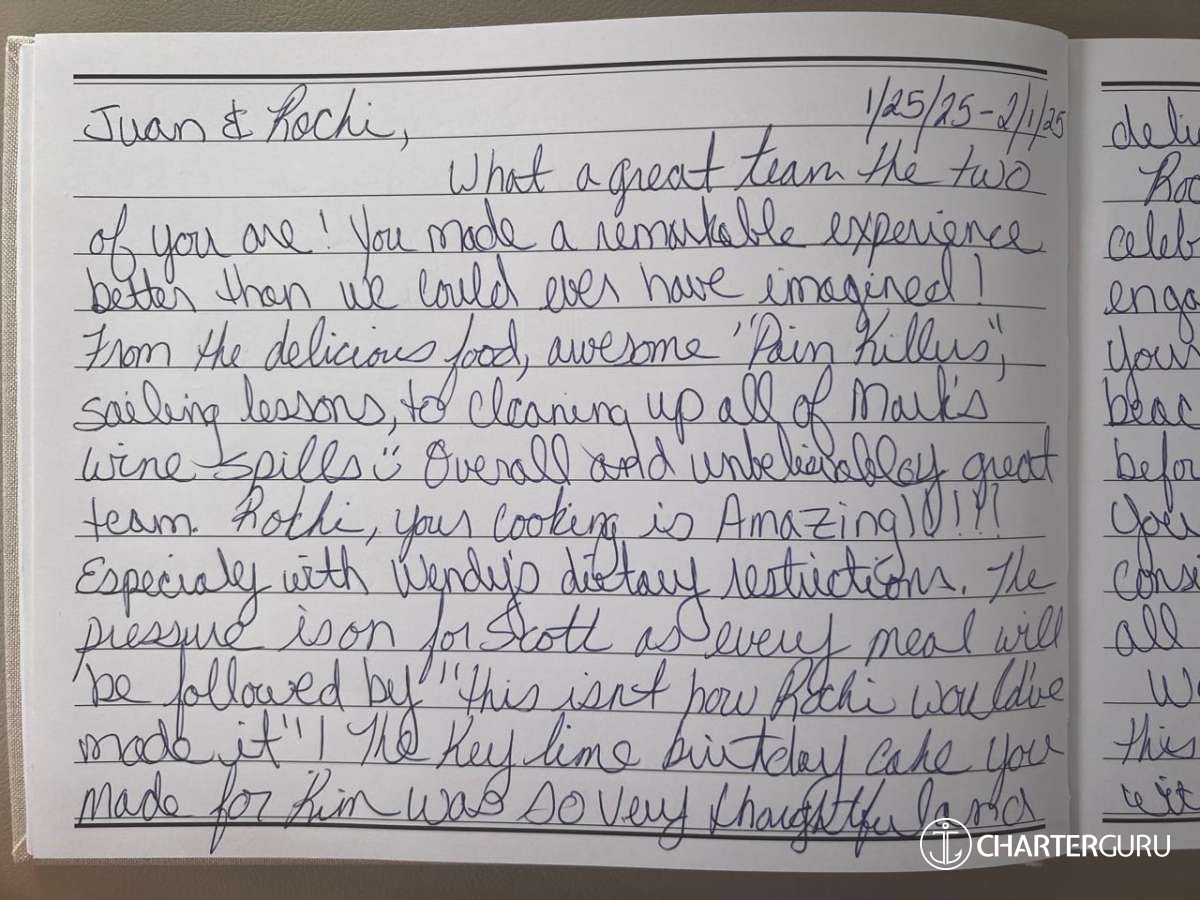 Juan & Rochi,
1/25/25-2/1/25
What a great team the two
of you are! You made a remarkable experience
better than we could ever have imagined!
From the delicious food, awesome "Pain Killers",
sailing lessons, to cleaning up all of Mark's
wine spills :) Overall and unbelievabley great
team. Rochi, your cooking is Amazing!!!!!
Especialy with Wendy's dietary restrictions. The
pressure is on for Scott as every meal will
be followed by "this isn't how Rochi would've
made it"! The Key lime birthday cake you
made for Kim was so very thoughtful and
deli
Roc
celeb
enga
your
beac
befor
you
cons
all
We
this
wit
CHARTERGURU